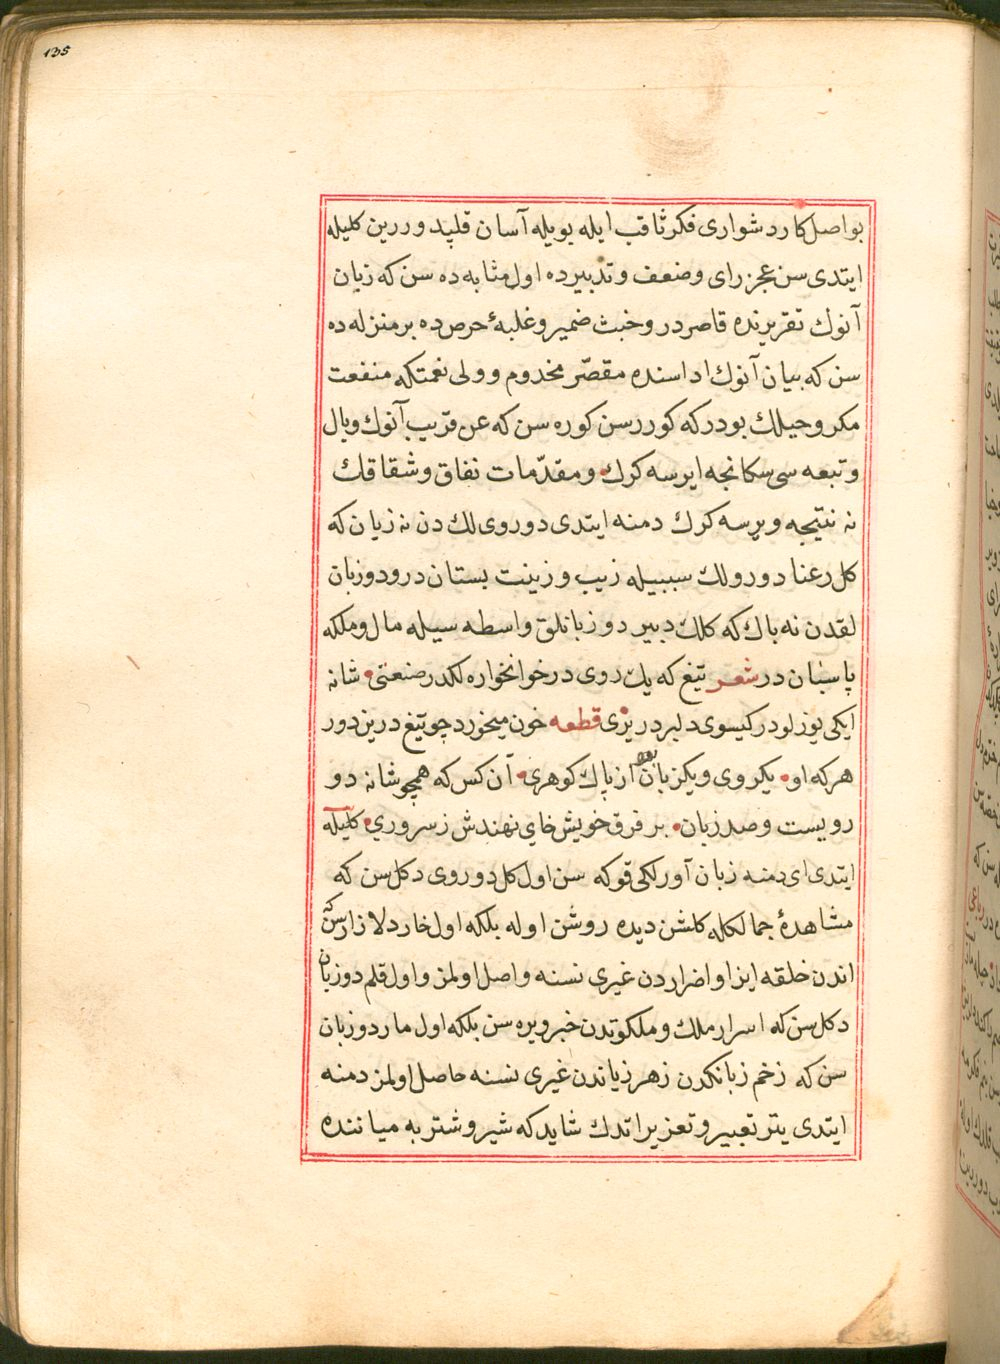 135
بو اصل كار دشواری فكر ثاقب ايله بويله آسان قلپد وررين كليله
ايتدی سن عجز رای وضعف وتدبيرده اول مثابه ده سن كه زبان
آنوك تقريرنده قاصردر وخبث ضمير وغلبۀ حرص ده بر منزله ده
سن كه بيان آنوك اداسنده مقصّر مخدوم و ولی نعمتكه منفعت
مكر وحيلك بودركه كوررسن كوره سن كه عن قريب آنوك وبال
وتبعه سی سكا نجه ايرسه كرك ومقدّمات نفاق وشقاقك
نه نتيجه ويرسه كرك دمنه ايتدی دوروی لك دن نه زيان كه
كل رعنا دورولك سببيله زيب وزينت بستان در ودوزبان
لقدن نه باك كه كلك دبير دوزبانلق واسطه سيله مال وملكه
پاسبان در شعر تيغ كه يك روی در خوانخواره لكدر صنعتی شانه
ايكی يوزلودر كيسوی دلبردر يری قطعه خون ميخورد چو تيغ درين دور
هركه او يكروی ويكزبان از پاك كوهری آن كس كه همچو شانه دو
رويست وصد زبان بر فرق خويش جای نهندش ز سروری كليله
ايتدی ای دمنه زبان آورلكی قو كه سن اول كل دوروی دكل سن كه
مشاهدۀ جمالكله كلشن ديده روشن اوله بلكه اول خار دلازارسن كه
اندن خلقه ايذا واضراردن غيری نسنه واصل اولمز واول قلم دوزبان
دكل سن كه اسرار ملك وملكوتدن خبر ويره سن بلكه اول مار دوزبان
سن كه زخم زبانكدن زهر زياندن غيری نسنه حاصل اولمز دمنه
ايتدی يتر تعيير وتعزير اتدك شايد كه شير وشتربه مياننده